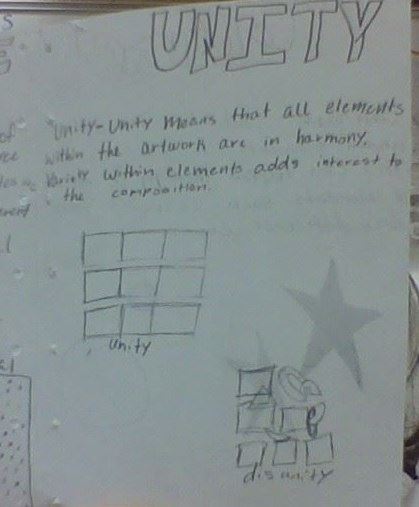 UNITY
"Unity-Unity Means that all elements
within the artwork are in harmony.
Variety within elements adds interest to
the composition.
unity
disunity